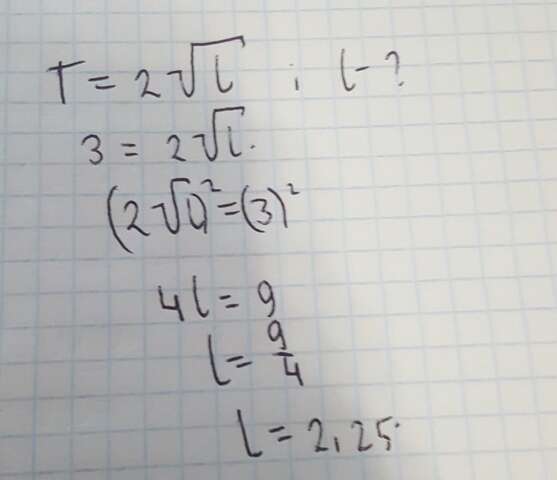 T = 2√l ; l - ?
3 = 2√l.
(2√l)² = (3)²
4l = 9
l = 9/4
l = 2,25.